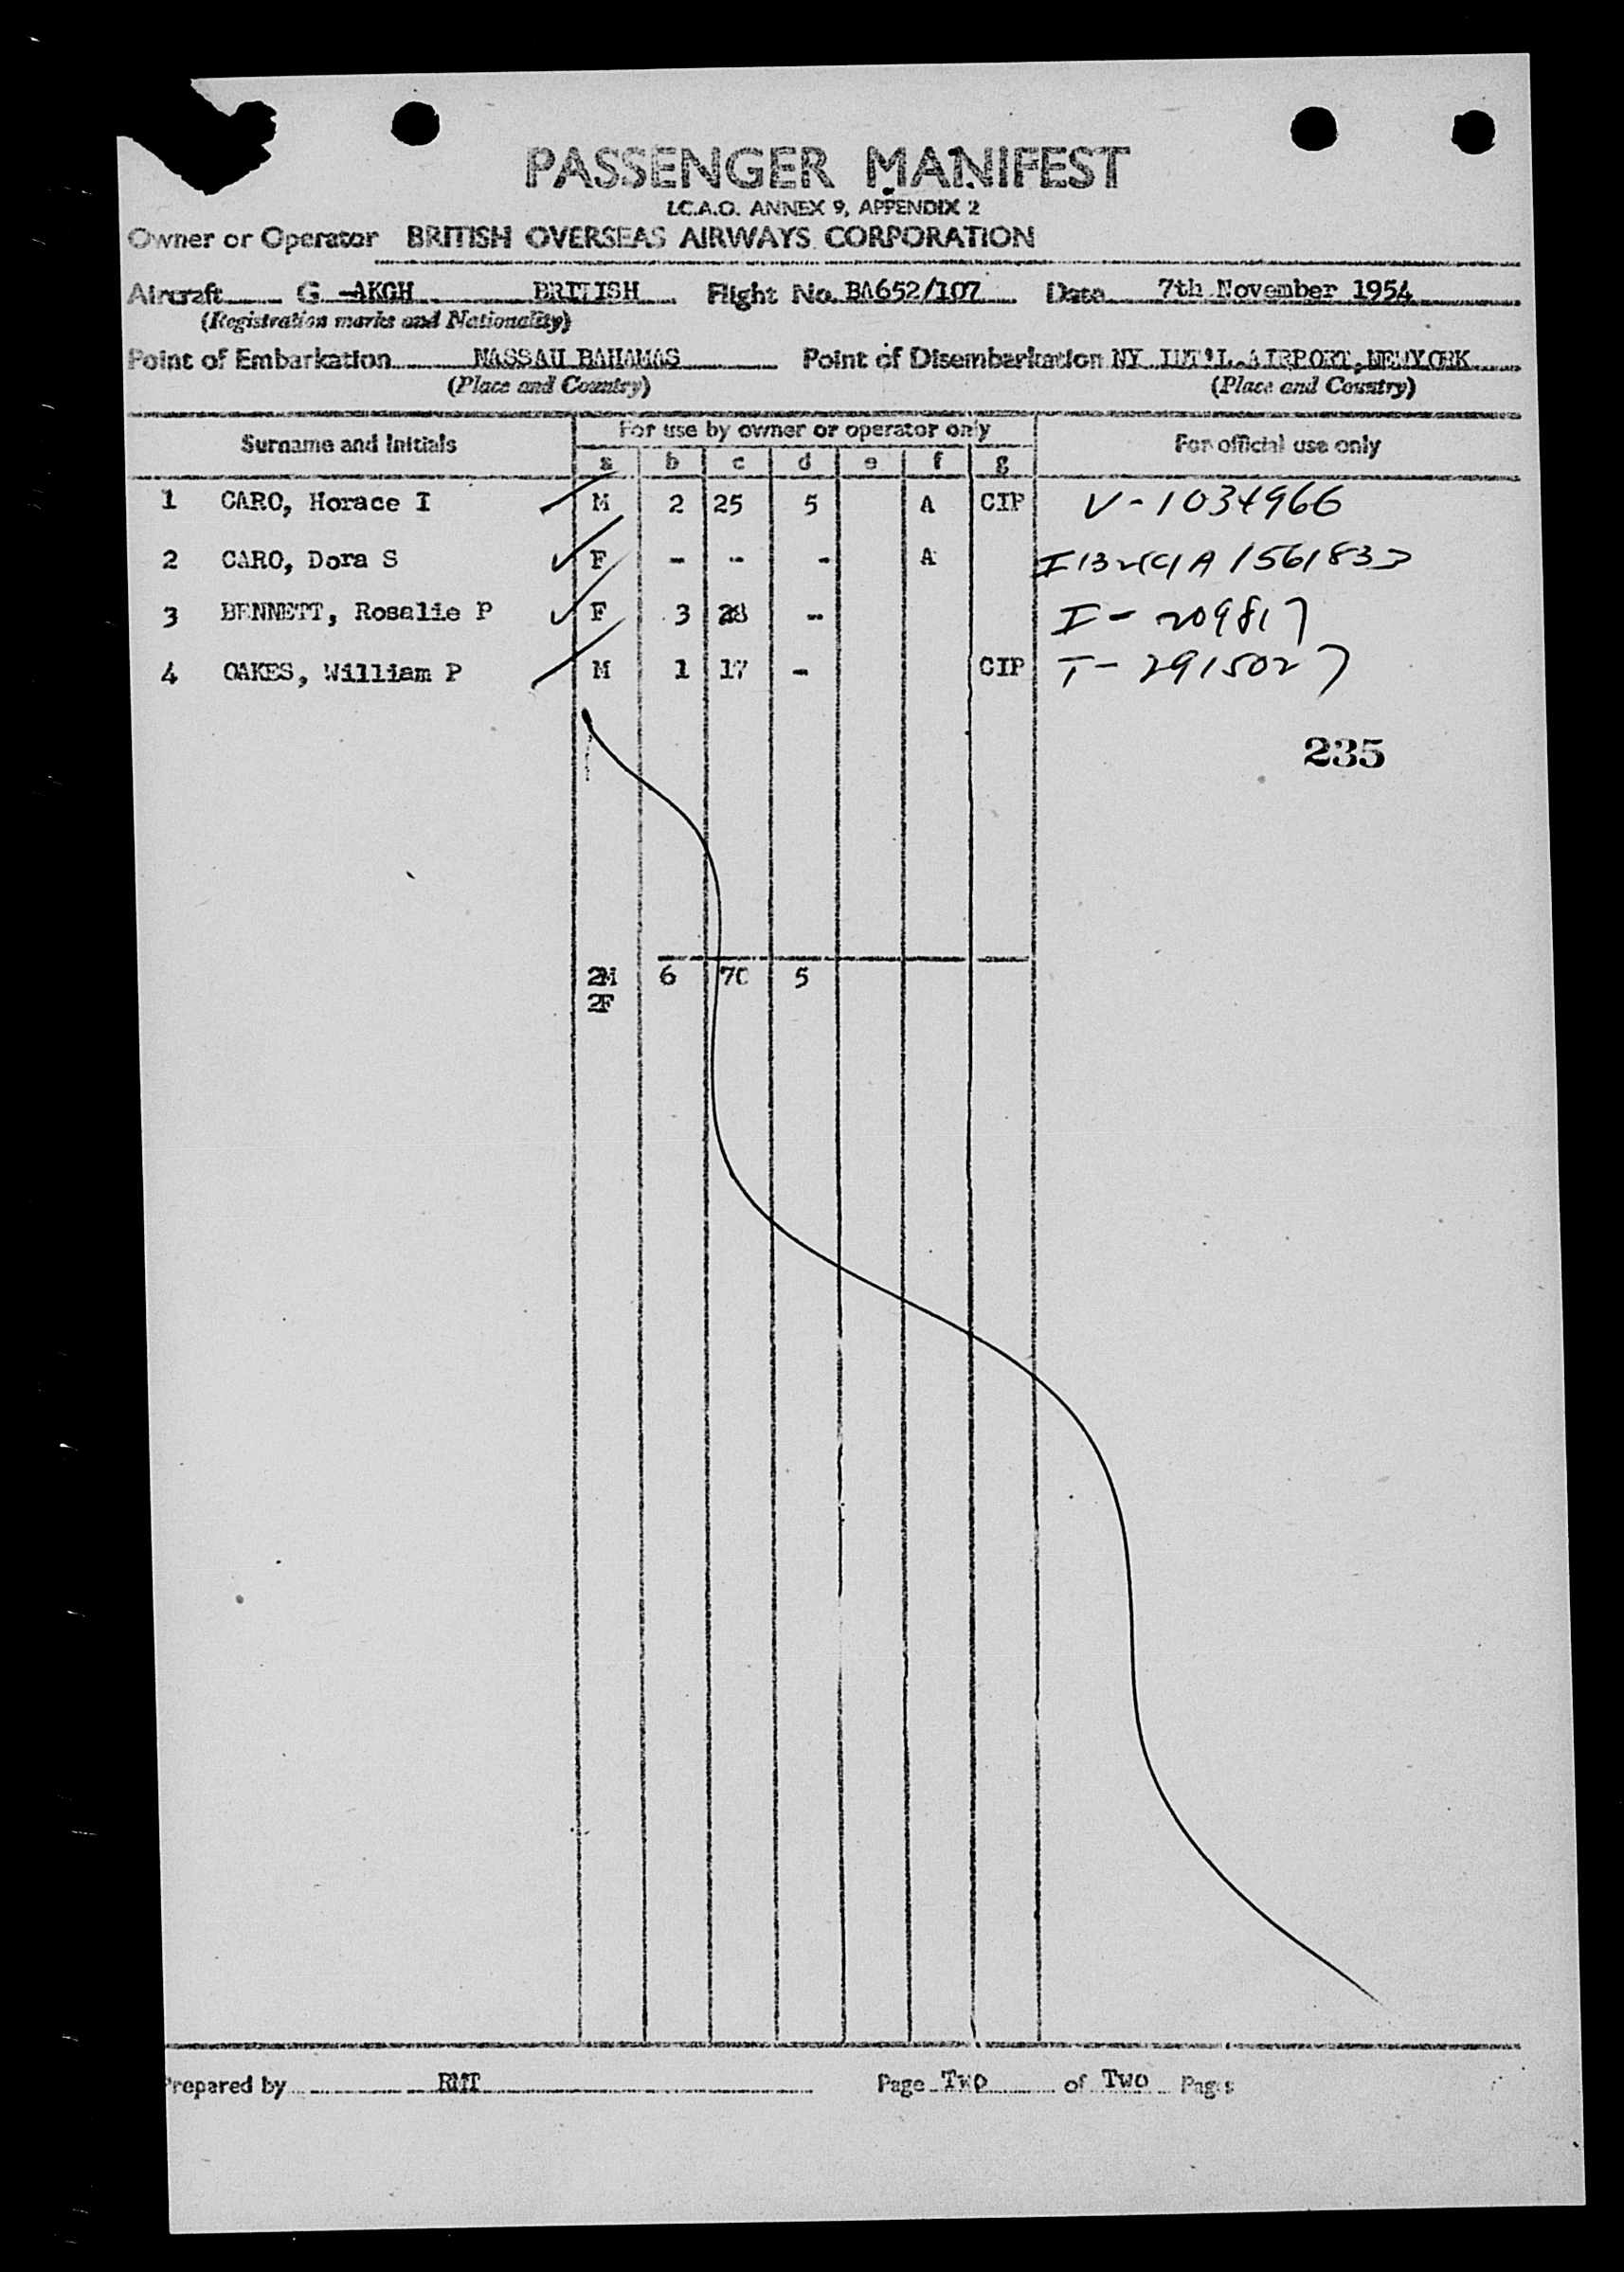 PASSENGER MANIFEST
I.C.A.O. ANNEX 9, APPENDIX 2
Owner or Operator BRITISH OVERSEAS AIRWAYS CORPORATION
Aircraft G -AKGH BRITISH Flight No. BA652/107 Date 7th November 1954
(Registration marks and Nationality)
Point of Embarkation NASSAU BAHAMAS Point of Disembarkation NY INT'L.AIRPORT,NEWYORK
(Place and Country) (Place and Country)
Surname and Initials For use by owner or operator only For official use only
a b c d e f g
1 CARO, Horace I M 2 25 5 A CIP V-1034966
2 CARO, Dora S F - - - A
3 BENNETT, Rosalie P F 3 28 - I-209817
4 OAKES, William P M 1 17 - CIP T-2915027
235
2M 6 70 5
2F
Prepared by RMT Page Two of Two Pages